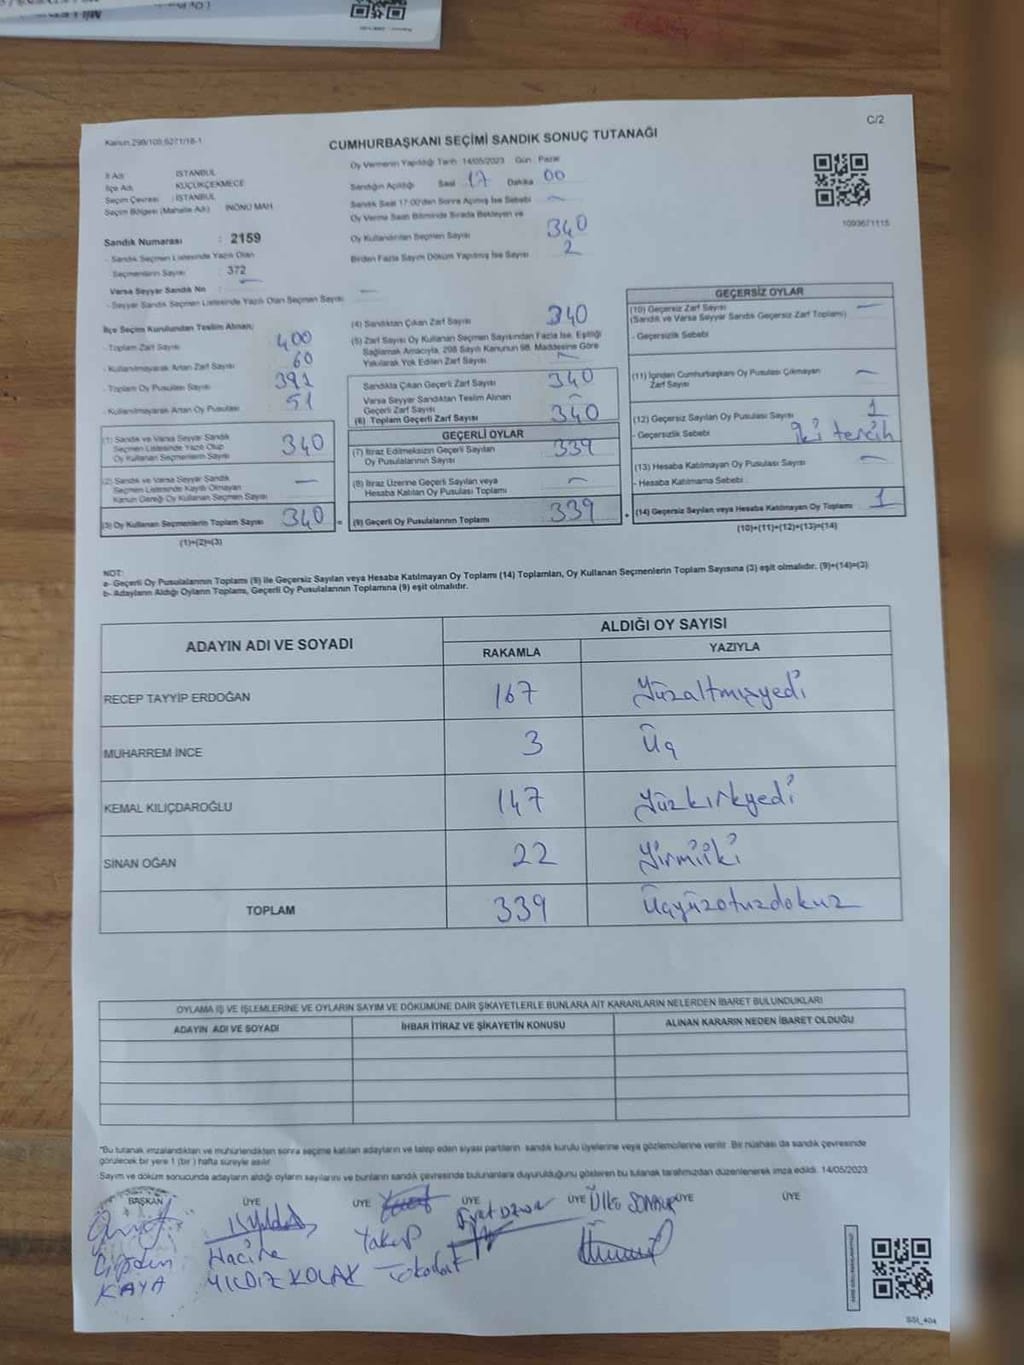 C/2
Kanun 298/109,6271/18-1
CUMHURBAŞKANI SEÇİMİ SANDIK SONUÇ TUTANAĞI
İl Adı : İSTANBUL
İlçe Adı : KÜÇÜKÇEKMECE
Seçim Çevresi : İSTANBUL
Seçim Bölgesi (Mahalle Adı) : İNÖNÜ MAH
Sandık Numarası : 2159
- Sandık Seçmen Listesinde Yazılı Olan
Seçmenlerin Sayısı : 372
Varsa Seyyar Sandık No : —
- Seyyar Sandık Seçmen Listesinde Yazılı Olan Seçmen Sayısı —
Oy Vermenin Yapıldığı Tarih 14/05/2023 Gün Pazar
Sandığın Açıldığı Saat 17 Dakika 00
Sandık Saat 17:00'den Sonra Açılmış İse Sebebi —
Oy Verme Saati Bitiminde Sırada Bekleyen ve
Oy Kullandırılan Seçmen Sayısı 340
Birden Fazla Sayım Döküm Yapılmış İse Sayısı 2
1093671115
İlçe Seçim Kurulundan Teslim Alınan;
- Toplam Zarf Sayısı 400
- Kullanılmayarak Artan Zarf Sayısı 60
- Toplam Oy Pusulası Sayısı 391
- Kullanılmayarak Artan Oy Pusulası 51
(1) Sandık ve Varsa Seyyar Sandık
Seçmen Listesinde Yazılı Olup
Oy Kullanan Seçmenlerin Sayısı 340
(2) Sandık ve Varsa Seyyar Sandık
Seçmen Listesinde Kayıtlı Olmayan
Kanun Gereği Oy Kullanan Seçmen Sayısı —
(3) Oy Kullanan Seçmenlerin Toplam Sayısı 340 =
(1)+(2)=(3)
(4) Sandıktan Çıkan Zarf Sayısı 340
(5) Zarf Sayısı Oy Kullanan Seçmen Sayısından Fazla İse, Eşitliği
Sağlamak Amacıyla, 298 Sayılı Kanunun 98. Maddesine Göre
Yakılarak Yok Edilen Zarf Sayısı —
Sandıkta Çıkan Geçerli Zarf Sayısı 340
Varsa Seyyar Sandıktan Teslim Alınan
Geçerli Zarf Sayısı —
(6) Toplam Geçerli Zarf Sayısı 340
GEÇERLİ OYLAR
(7) İtiraz Edilmeksizin Geçerli Sayılan
Oy Pusulalarının Sayısı 339
(8) İtiraz Üzerine Geçerli Sayılan veya
Hesaba Katılan Oy Pusulası Toplamı —
(9) Geçerli Oy Pusulalarının Toplamı 339 +
GEÇERSİZ OYLAR
(10) Geçersiz Zarf Sayısı —
(Sandık ve Varsa Seyyar Sandık Geçersiz Zarf Toplamı)
- Geçersizlik Sebebi
(11) İçinden Cumhurbaşkanı Oy Pusulası Çıkmayan
Zarf Sayısı —
(12) Geçersiz Sayılan Oy Pusulası Sayısı 1
- Geçersizlik Sebebi İki tercih
(13) Hesaba Katılmayan Oy Pusulası Sayısı —
- Hesaba Katılmama Sebebi
(14) Geçersiz Sayılan veya Hesaba Katılmayan Oy Toplamı 1
(10)+(11)+(12)+(13)=(14)
NOT:
a- Geçerli Oy Pusulalarının Toplamı (9) ile Geçersiz Sayılan veya Hesaba Katılmayan Oy Toplamı (14) Toplamları, Oy Kullanan Seçmenlerin Toplam Sayısına (3) eşit olmalıdır. (9)+(14)=(3)
b- Adayların Aldığı Oyların Toplamı, Geçerli Oy Pusulalarının Toplamına (9) eşit olmalıdır.
ADAYIN ADI VE SOYADI ALDIĞI OY SAYISI
RAKAMLA YAZIYLA
RECEP TAYYİP ERDOĞAN 167 Yüzaltmışyedi
MUHARREM İNCE 3 Üç
KEMAL KILIÇDAROĞLU 147 Yüzkırkyedi
SİNAN OĞAN 22 Yirmiiki
TOPLAM 339 Üçyüzotuzdokuz
OYLAMA İŞ VE İŞLEMLERİNE VE OYLARIN SAYIM VE DÖKÜMÜNE DAİR ŞİKAYETLERLE BUNLARA AİT KARARLARIN NELERDEN İBARET BULUNDUKLARI
ADAYIN ADI VE SOYADI İHBAR İTİRAZ VE ŞİKAYETİN KONUSU ALINAN KARARIN NEDEN İBARET OLDUĞU
"Bu tutanak imzalandıktan ve mühürlendikten sonra seçime katılan adayların ve talep eden siyasi partilerin sandık kurulu üyelerine veya gözlemcilerine verilir. Bir nüshası da sandık çevresinde
görülecek bir yere 1 (bir) hafta süreyle asılır.
Sayım ve döküm sonucunda adayların aldığı oyların sayılarını ve bunların sandık çevresinde bulunanlara duyurulduğunu gösteren bu tutanak tarafımızdan düzenlenerek imza edildi. 14/05/2023
BAŞKAN ÜYE ÜYE ÜYE ÜYE ÜYE ÜYE
Çiğdem KAYA
Hacine YILDIZ KOLAK
Yakup
ÜLKÜ
SSI_404